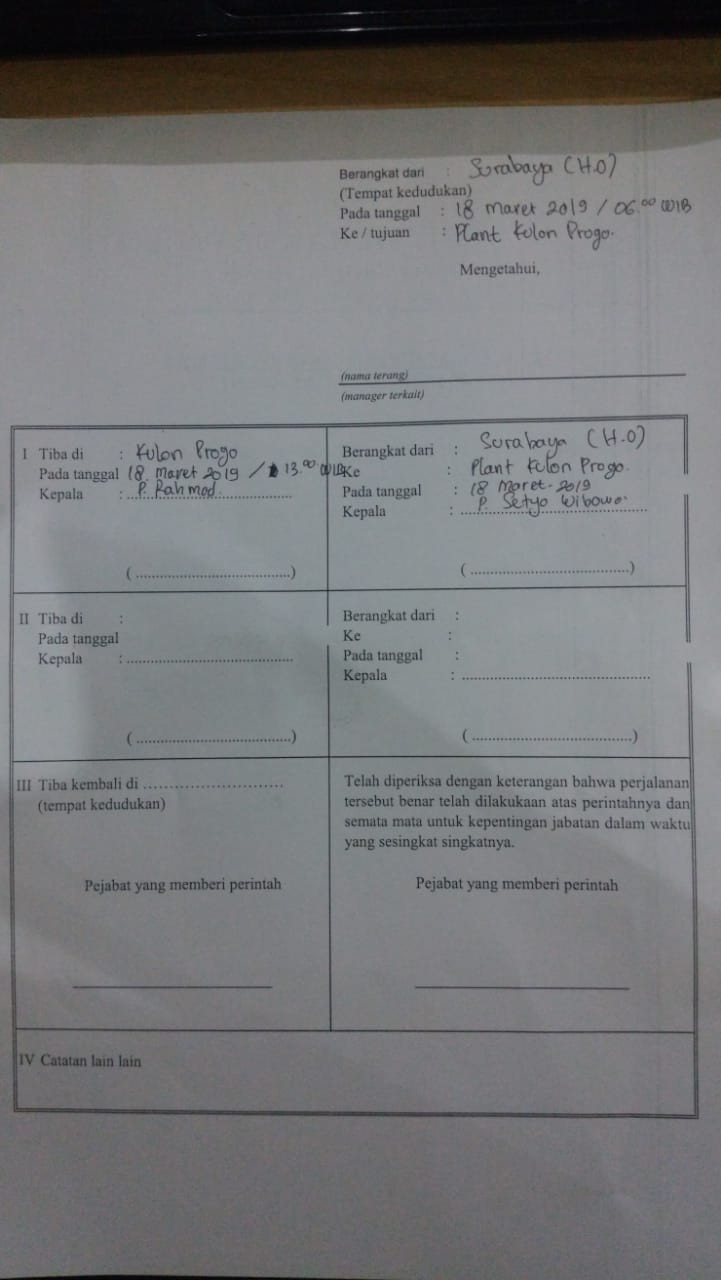 Berangkat dari : Surabaya (H.O)
(Tempat kedudukan)
Pada tanggal : 18 Maret 2019 / 06.00 WIB
Ke / tujuan : Plant Kulon Progo.
Mengetahui,
(nama terang)
(manager terkait)
I Tiba di : Kulon Progo
Pada tanggal 18 Maret 2019 / 13.00 WIB
Kepala : P. Rahmad.
(................................)
Berangkat dari : Surabaya (H.O)
Ke : Plant Kulon Progo.
Pada tanggal : 18 Maret 2019
Kepala : P. Setyo Wibowo.
(................................)
II Tiba di :
Pada tanggal
Kepala : ................................
(................................)
Berangkat dari :
Ke :
Pada tanggal :
Kepala : ................................
(................................)
III Tiba kembali di ............................
(tempat kedudukan)
Pejabat yang memberi perintah
Telah diperiksa dengan keterangan bahwa perjalanan
tersebut benar telah dilakukaan atas perintahnya dan
semata mata untuk kepentingan jabatan dalam waktu
yang sesingkat singkatnya.
Pejabat yang memberi perintah
IV Catatan lain lain